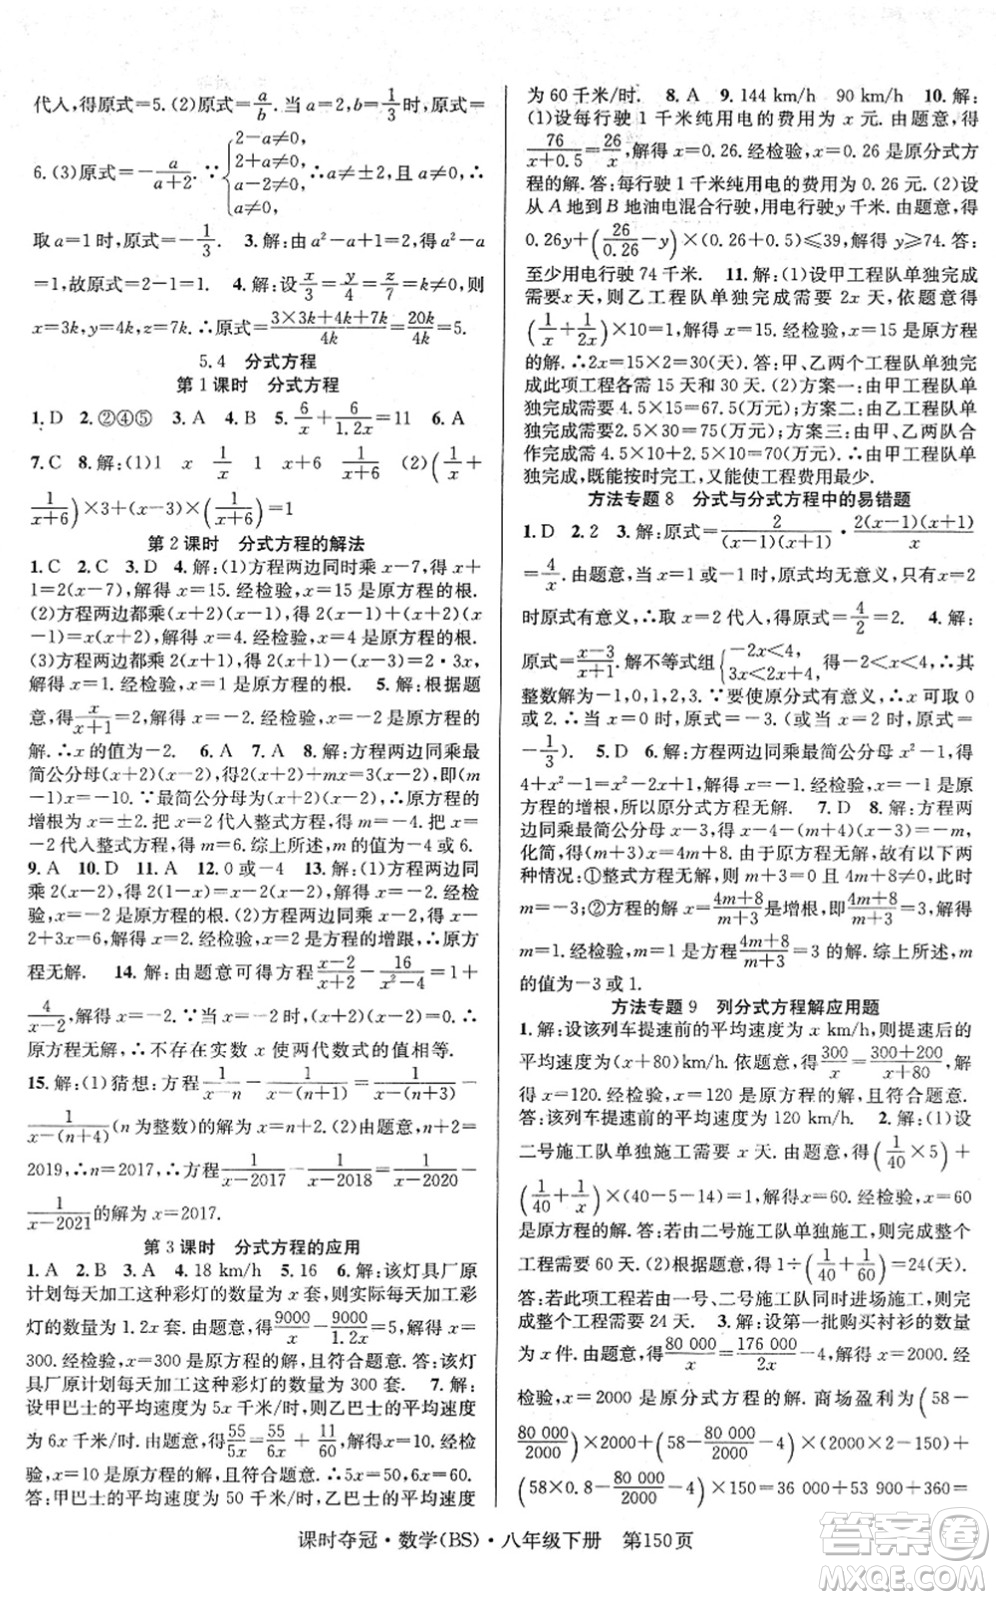 代入,得原式=5.(2)原式=a/b.当a=2,b=1/3时,原式=
6.(3)原式=-a/(a+2).∵{2-a≠0, 2+a≠0, a≠0, ∴a≠±2,且a≠0,∴
取a=1时,原式=-1/3. 3.解:由a²-a+1=2,得a²-a
=1,故原式=2-1=1. 4.解:设x/3=y/4=z/7=k≠0,则
x=3k,y=4k,z=7k.∴原式=(3×3k+4k+7k)/4k=20k/4k=5.
5.4 分式方程
第1课时 分式方程
1.D 2.②④⑤ 3.A 4.B 5.6/x+6/1.2x=11 6.A
7.C 8.解:(1)1 x 1/x 1 x+6 1/(x+6) (2)(1/x+
1/(x+6))×3+(x-3)×1/(x+6)=1
第2课时 分式方程的解法
1.C 2.C 3.D 4.解:(1)方程两边同时乘x-7,得x+
1=2(x-7),解得x=15.经检验,x=15是原方程的根.
(2)方程两边都乘(x+2)(x-1),得2(x-1)+(x+2)(x
-1)=x(x+2),解得x=4.经检验,x=4是原方程的根.
(3)方程两边都乘2(x-1),得2(x+1)-(x-3)=2·3x,
解得x=1.经检验,x=1是原方程的根. 5.解:根据题
意,得x/(x+1)=2,解得x=-2.经检验,x=-2是原方程的
解.∴x的值为-2. 6.A 7.A 8.解:方程两边同乘最
简公分母(x+2)(x-2),得2(x+2)+mx=x-2,即(m
+1)x=-10.∵最简公分母为(x+2)(x-2),∴原方程的
增根为x=±2.把x=2代入整式方程,得m=-6.把x=
-2代入整式方程,得m=4.综上所述,m的值为-4或6.
9.A 10.D 11.A 12.0或-4 13.解:(1)方程两边同
乘2(x-2),得2(1-x)=x-2(x-2),解得x=-2.经检
验,x=-2是原方程的根.(2)方程两边同乘(x-2),得x-
2+3x=6,解得x=2.经检验,x=2是方程的增跟,∴原方
程无解. 14.解:由题意可得方程(x-2)/(x+2)-16/(x²-4)=1+
4/(x-2),解得x=-2.∵当x=-2时,(x+2)(x-2)=0,∴
原方程无解,∴不存在实数x使两代数式的值相等.
15.解:(1)猜想:方程1/(x-n)-1/[x-(n+1)]=1/[x-(n+3)]-
1/[x-(n+4)](n为整数)的解为x=n+2.(2)由题意,得n+2=
2019,∴n=2017,∴方程1/(x-2017)-1/(x-2018)=1/(x-2020)-
1/(x-2021)的解为x=2017.
第3课时 分式方程的应用
1.A 2.B 3.A 4.18 km/h 5.16 6.解:该灯具厂原
计划每天加工这种彩灯的数量为x套,则实际每天加工彩
灯的数量为1.2x套.由题意,得9000/x-9000/1.2x=5,解得x=
300.经检验,x=300是原方程的解,且符合题意.答:该灯
具厂原计划每天加工这种彩灯的数量为300套. 7.解:
设甲巴士的平均速度为5x千米/时,则乙巴士的平均速度
为6x千米/时.由题意,得55/5x=55/6x+11/60,解得x=10.经检
验,x=10是原方程的解,且符合题意.∴5x=50,6x=60.
答:甲巴士的平均速度为50千米/时,乙巴士的平均速度
为60千米/时. 8.A 9.144 km/h 90 km/h 10.解:
(1)设每行驶1千米纯用电的费用为x元.由题意,得
76/(x+0.5)=26/x,解得x=0.26.经检验,x=0.26是原分式方
程的解.答:每行驶1千米纯用电的费用为0.26元.(2)设
从A地到B地油电混合行驶,用电行驶y千米.由题意,得
0.26y+(26/0.26-y)×(0.26+0.5)≤39,解得y≥74.答:
至少用电行驶74千米. 11.解:(1)设甲工程队单独完成
需要x天,则乙工程队单独完成需要2x天.由题意,得
(1/x+1/2x)×10=1,解得x=15.经检验,x=15是原方程
的解.∴2x=15×2=30(天).答:甲、乙两个工程队单独完
成此项工程各需15天和30天.(2)方案一:由甲工程队单
独完成需要4.5×15=67.5(万元);方案二:由乙工程队单
独完成需要2.5×30=75(万元);方案三:由甲、乙两队合
作完成需要4.5×10+2.5×10=70(万元).∴由甲工程队
单独完成,既能按时完工,又能使工程费用最少.
方法专题8 分式与分式方程中的易错题
1.D 2.2 3.解:原式=2/[(x-1)(x+1)]·2(x-1)(x+1)/x
=4/x.由题意,当x=1或-1时,原式均无意义,只有x=2
时原式有意义,∴取x=2代入,得原式=4/2=2. 4.解:
原式=(x-3)/(x+1).解不等式组{-2x<4, 3x<2x+4,得-2<x<4,∴其
整数解为-1,0,1,2,3.∵要使原分式有意义,∴x可取0
或2.∴当x=0时,原式=-3.(或当x=2时,原式=
-1/3). 5.D 6.解:方程两边同乘最简公分母x²-1,得
4+x²-1=(x+1)²,解得x=1.经检验,当x=1时是原方
程的增根,所以原分式方程无解. 7.D 8.解:方程两
边同乘最简公分母x-3,得x-4-(m+4)(x-3)=-m,
化简,得(m+3)x=4m+8.由于原方程无解,故有以下两
种情况:①整式方程无解,则m+3=0,即4m+8≠0,解得
m=-3;②方程有x=(4m+8)/(m+3)是增根,即(4m+8)/(m+3)=3,解得
m=1.经检验,m=1是方程(4m+8)/(m+3)=3的解.综上所述,m
的值为-3或1.
方法专题9 列分式方程解应用题
1.解:设该列车提速前的平均速度为x km/h,则提速后的
平均速度为(x+80)km/h.依题意,得300/x=(300+200)/(x+80),解
得x=120.经检验,x=120是原方程的解,且符合题意.
答:该列车提速前的平均速度为120 km/h. 2.解:(1)设
二号施工队单独施工需要x天.由题意,得(1/40×5)+
(1/40+1/x)×(40-5-14)=1,解得x=60.经检验,x=60
是原方程的解.答:若由二号施工队单独施工,完成整个
工程需要60天.(2)根据题意,得1÷(1/40+1/60)=24(天).
答:若此项工程若由一号、二号施工队同时进场施工,完成
整个工程需要24天. 3.解:设第一批购买衬衫的数量
为x件.由题意,得80 000/x=176 000/2x-4,解得x=2000.经
检验,x=2000是原分式方程的解.商场盈利为(58-
80 000/2000)×2000+(58-80 000/2000-4)×(2000×2-150)+
(58×0.8-80 000/2000-4)×150=36000+53900+360=
课时夺冠·数学(BS)·八年级下册 第150页
答案圈
MXQE.COM